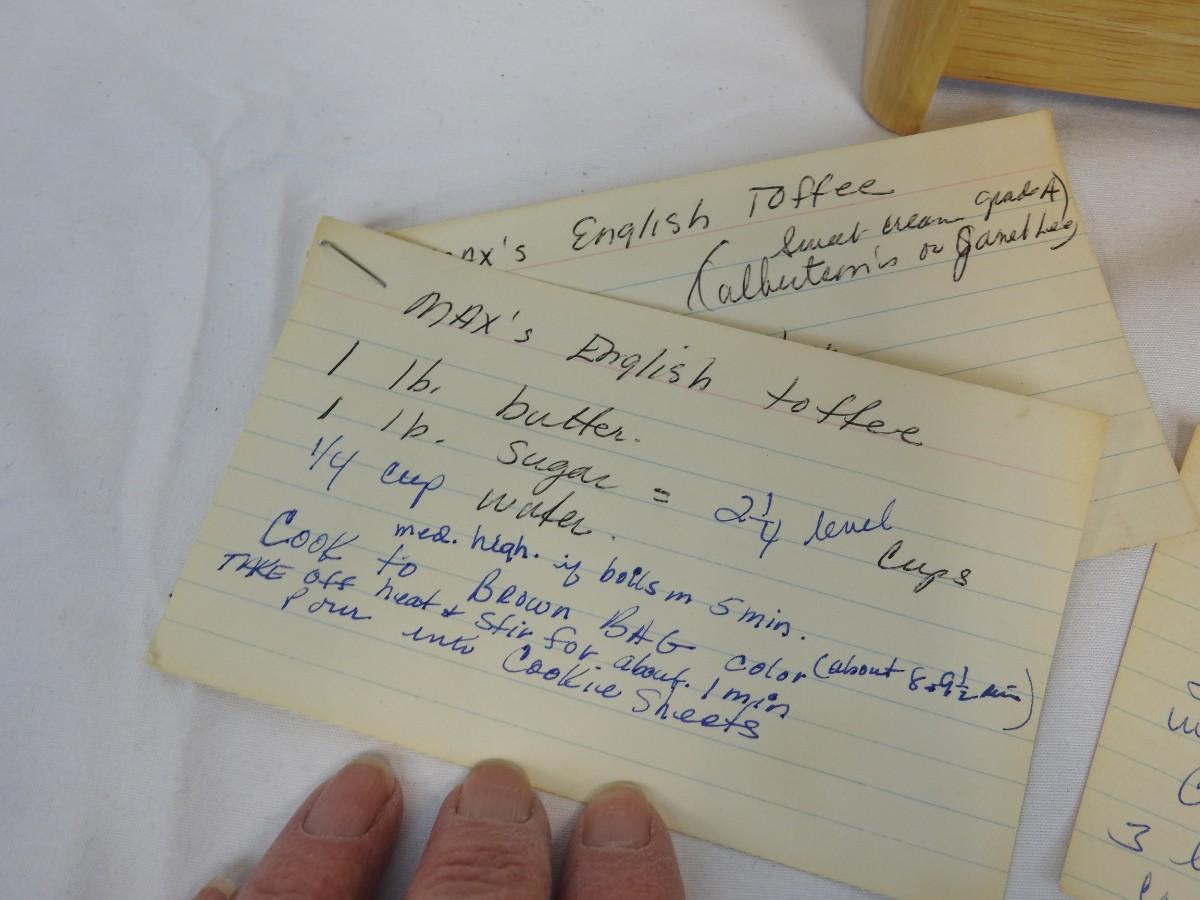 MAX's English Toffee
(Sweet cream grade A)
(albertson's or Janet Lee)
MAX's English toffee
1 lb. butter.
1 lb. Sugar = 2 1/4 level cups
1/4 cup water.
med. high. if boils in 5 min.
Cook to BROWN BAG color (about 8 9 1/2 min)
TAKE off heat & stir for about 1 min
Pour into Cookie Sheets
3